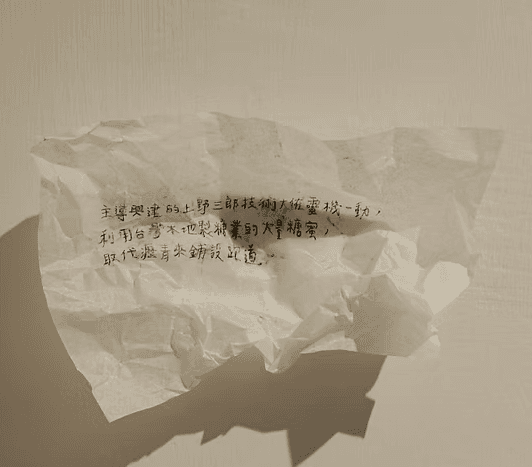 主導興建的上野三郎技術大佐靈機一動，
利用台灣本地製糖業的大量糖蜜，
取代瀝青來鋪設跑道。